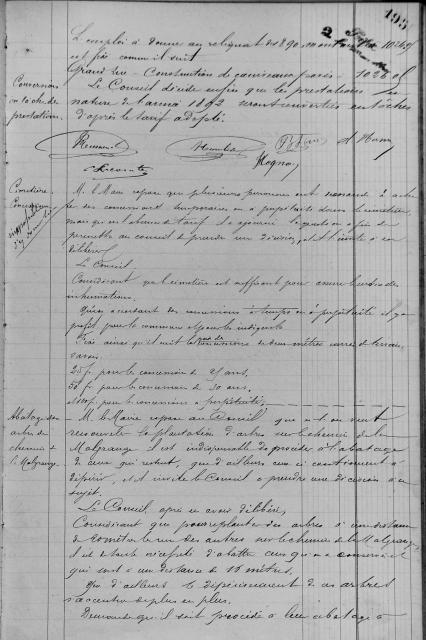 195
L'emploi à donner au reliquat de 1890 montant à 1026f
est fixé comme il suit
Grand rue - Construction de caniveaux pavés - 1026 f
Conversion
en tâches des
prestations.
Le Conseil décide enfin que les prestations en
nature de l'année 1892 seront converties en tâches
d'après le tarif adopté.
Cimetière
Concessions
M. le Maire expose que plusieurs personnes ont demandé à ache
ter des concessions temporaires ou à perpétuité dans le cimetière
mais qu'en l'absence de tarif il a ajourné la question afin de
permettre au conseil de prendre une décision, et il l'invite à en
délibérer
Le Conseil
Considérant que le cimetière est suffisant pour assurer le service des
inhumations.
Qu'en accordant des concessions à temps ou à perpétuité il y a
profit pour la commune et pour les indigents
Fixe ainsi qu'il suit le prix de concessions de deux mètres carrés de terrain,
savoir:
25 fr pour les concessions de 15 ans.
50 fr pour les concessions de 30 ans.
et 100 f. pour les concessions à perpétuité.
Abatage des
arbres du
chemin de
la Malgrange
M. le Maire expose au Conseil que si on veut
renouveler la plantation d'arbres sur le chemin de la
Malgrange il est indispensable de procéder à l'abatage
de ceux qui restent, que d'ailleurs ceux-ci continuent à
dépérir, et il invite le Conseil à prendre une décision à ce
sujet.
Le Conseil après en avoir délibéré,
Considérant que pour replanter des arbres à une distance
de 10 mètres les uns des autres sur le chemin de la Malgrange
il est de toute nécessité d'abattre ceux qu'on a conservés
qui sont à une distance de 15 mètres.
Que d'ailleurs le dépérissement de ces arbres
s'accentue de plus en plus.
Demande qu'il soit procédé à leur abatage à